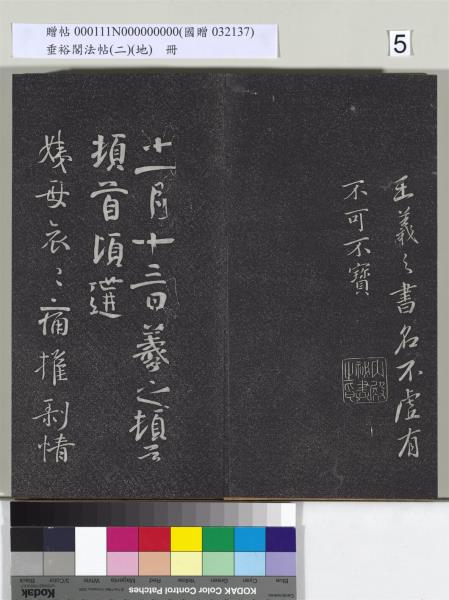 贈帖 000111N000000000(國贈 032137)
垂裕閣法帖(二)(地) 冊
5
王羲之書名不虛有
不可不寶
十一月十三日羲之頓首
頓首頃遘
姨母哀〻痛摧剝情
Blue Cyan Green Yellow Red Magenta White 3/Color Black
Kodak
KODAK Color Control Patches